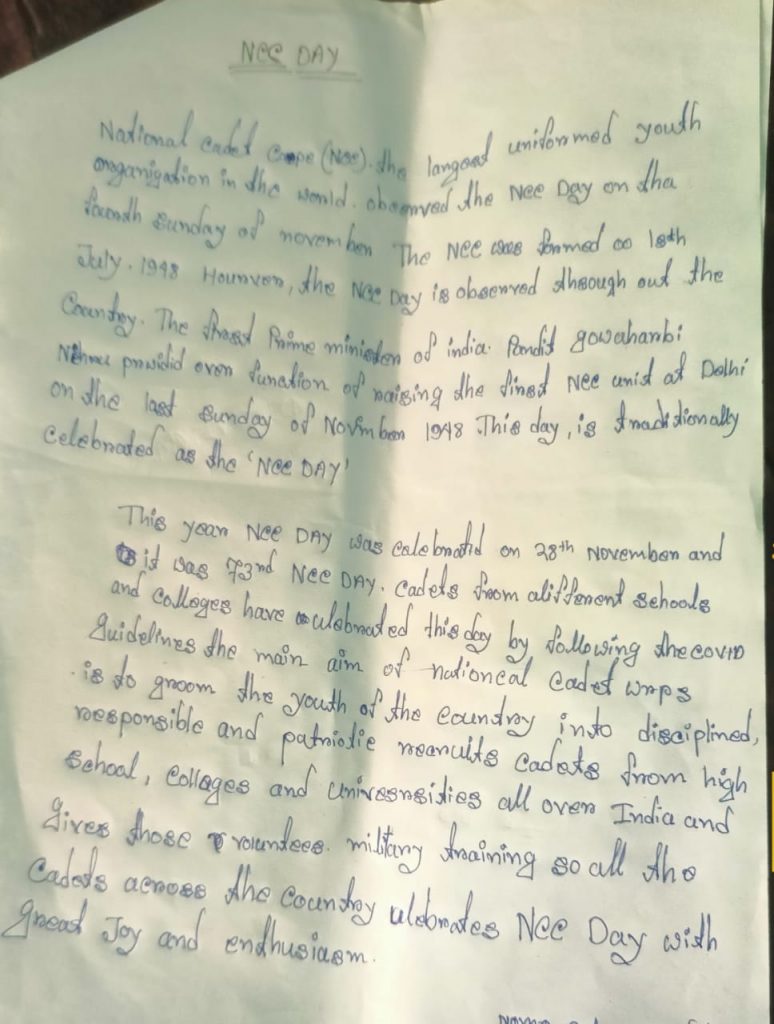 NCC DAY
National cadet Corps (Ncc). the largest uniformed youth
organization in the world. observed the Ncc Day on the
fourth sunday of november The NCC was formed on 16th
July. 1948 However, the Ncc Day is observed through out the
Country. The first Prime minister of india. Pandit gowaharlal
Nehru presidid over function of raising the first Ncc unit at Delhi
on the last sunday of November 1948 This day, is traditionally
celebrated as the 'NCC DAY'
This year NCC DAY was celebrated on 28th November and
it was 73rd NCC DAY. Cadets from different schools
and colleges have celebrated this day by following the COVID
Guidelines the main aim of national cadet corps
is to groom the youth of the country into disciplined,
responsible and patriotic recruits cadets from high
school, colleges and universities all over India and
gives those volunteers. military training so all the
Cadets across the country celebrates NCC Day with
great Joy and enthusiasm.